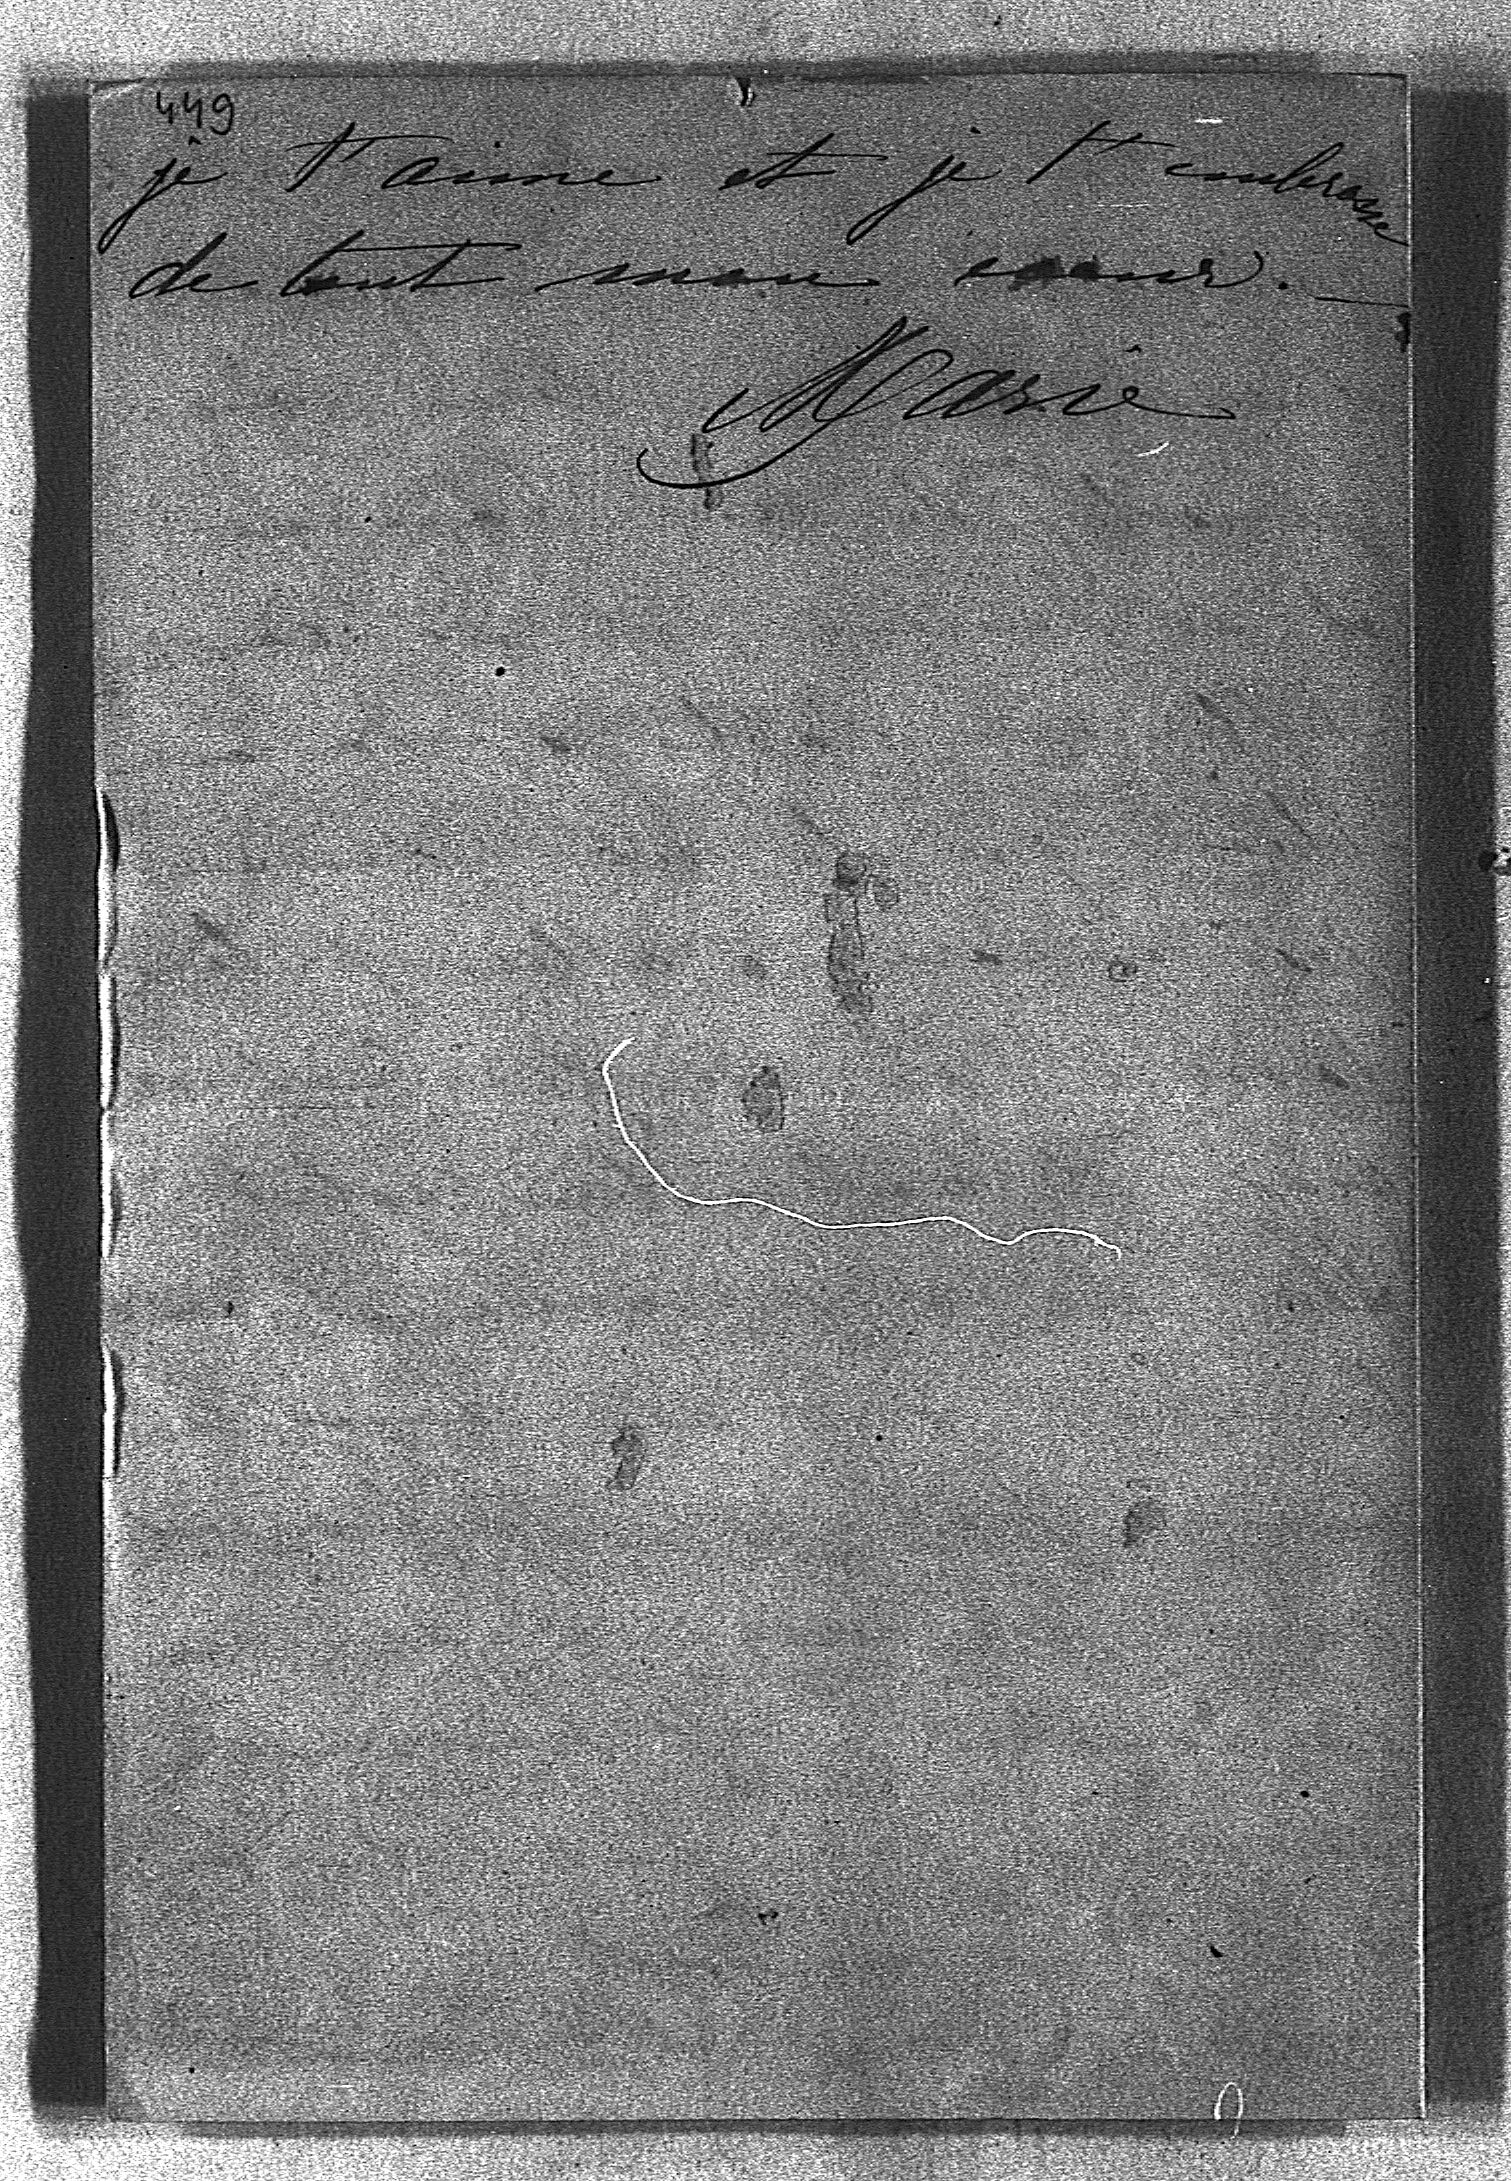 449
je t'aime et je t'embrasse
de tout mon coeur.
Marie